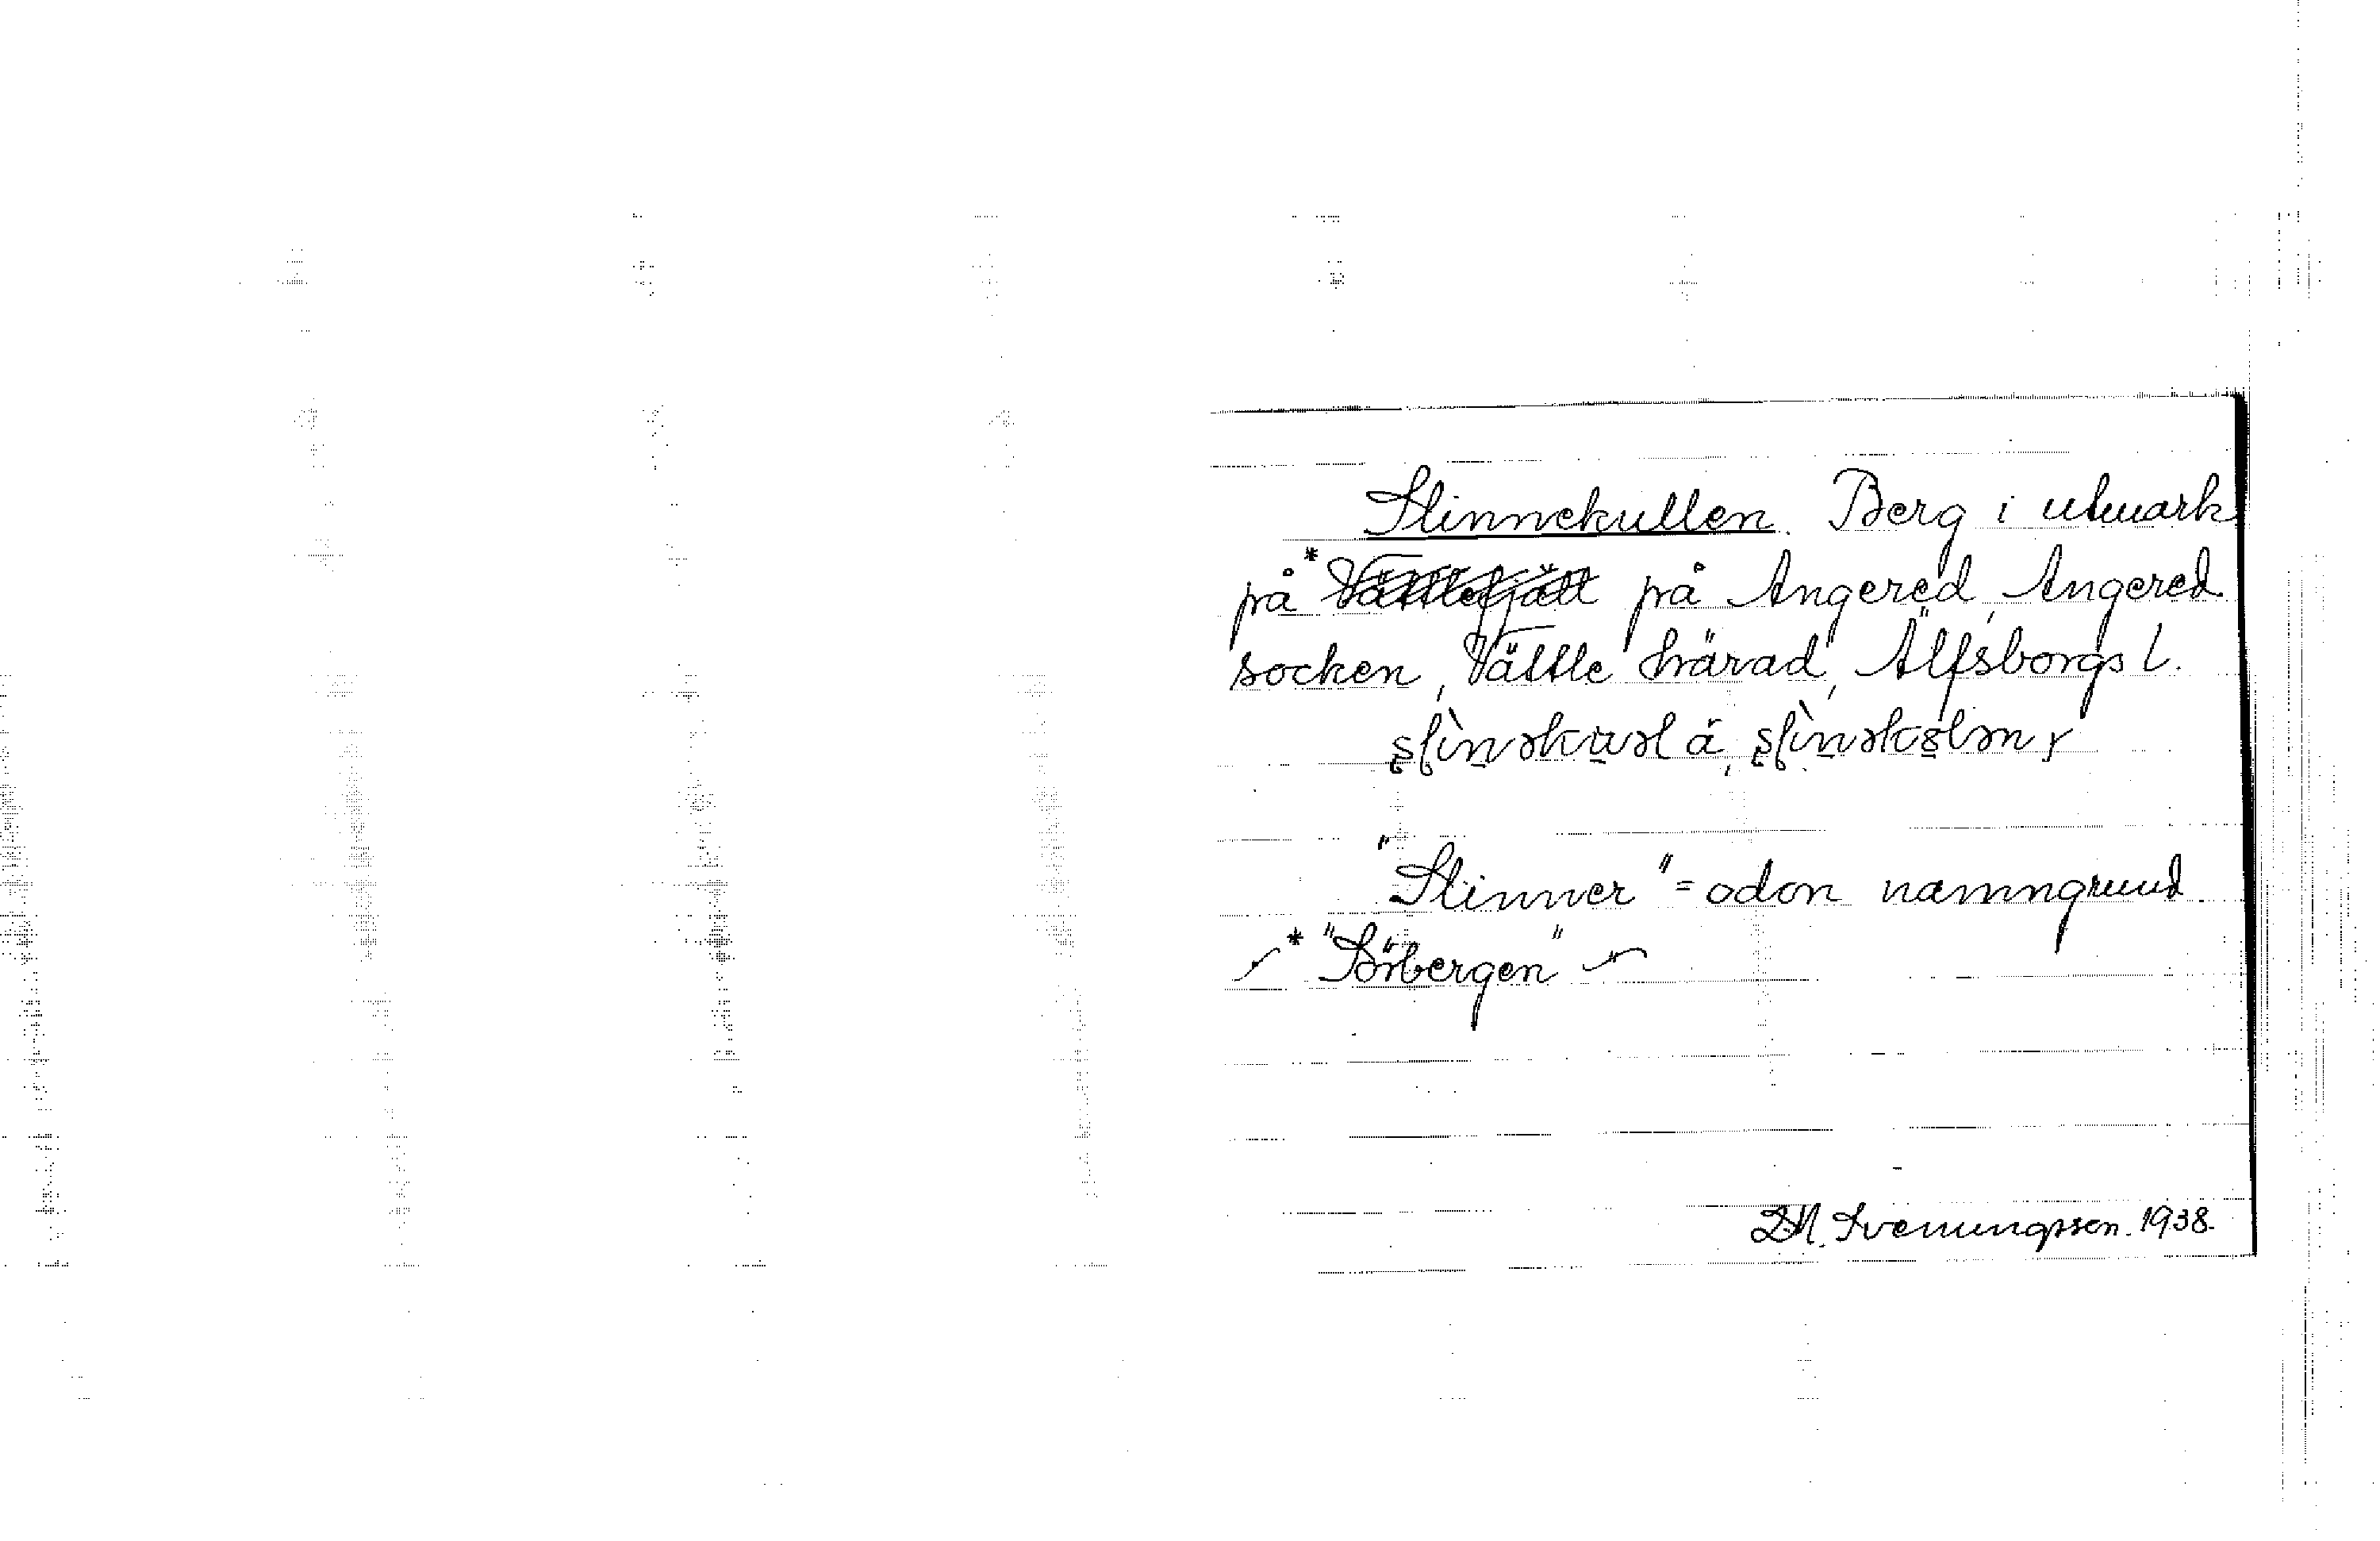 Slinnekullen. Berg i utmark
på * Vättlefjäll på Angered, Angered
socken, Vättle härad, Älfsborgs l.
"Slinner" = odon namngrund.
* "Börbergen"
D.H. Svenungsson. 1938.